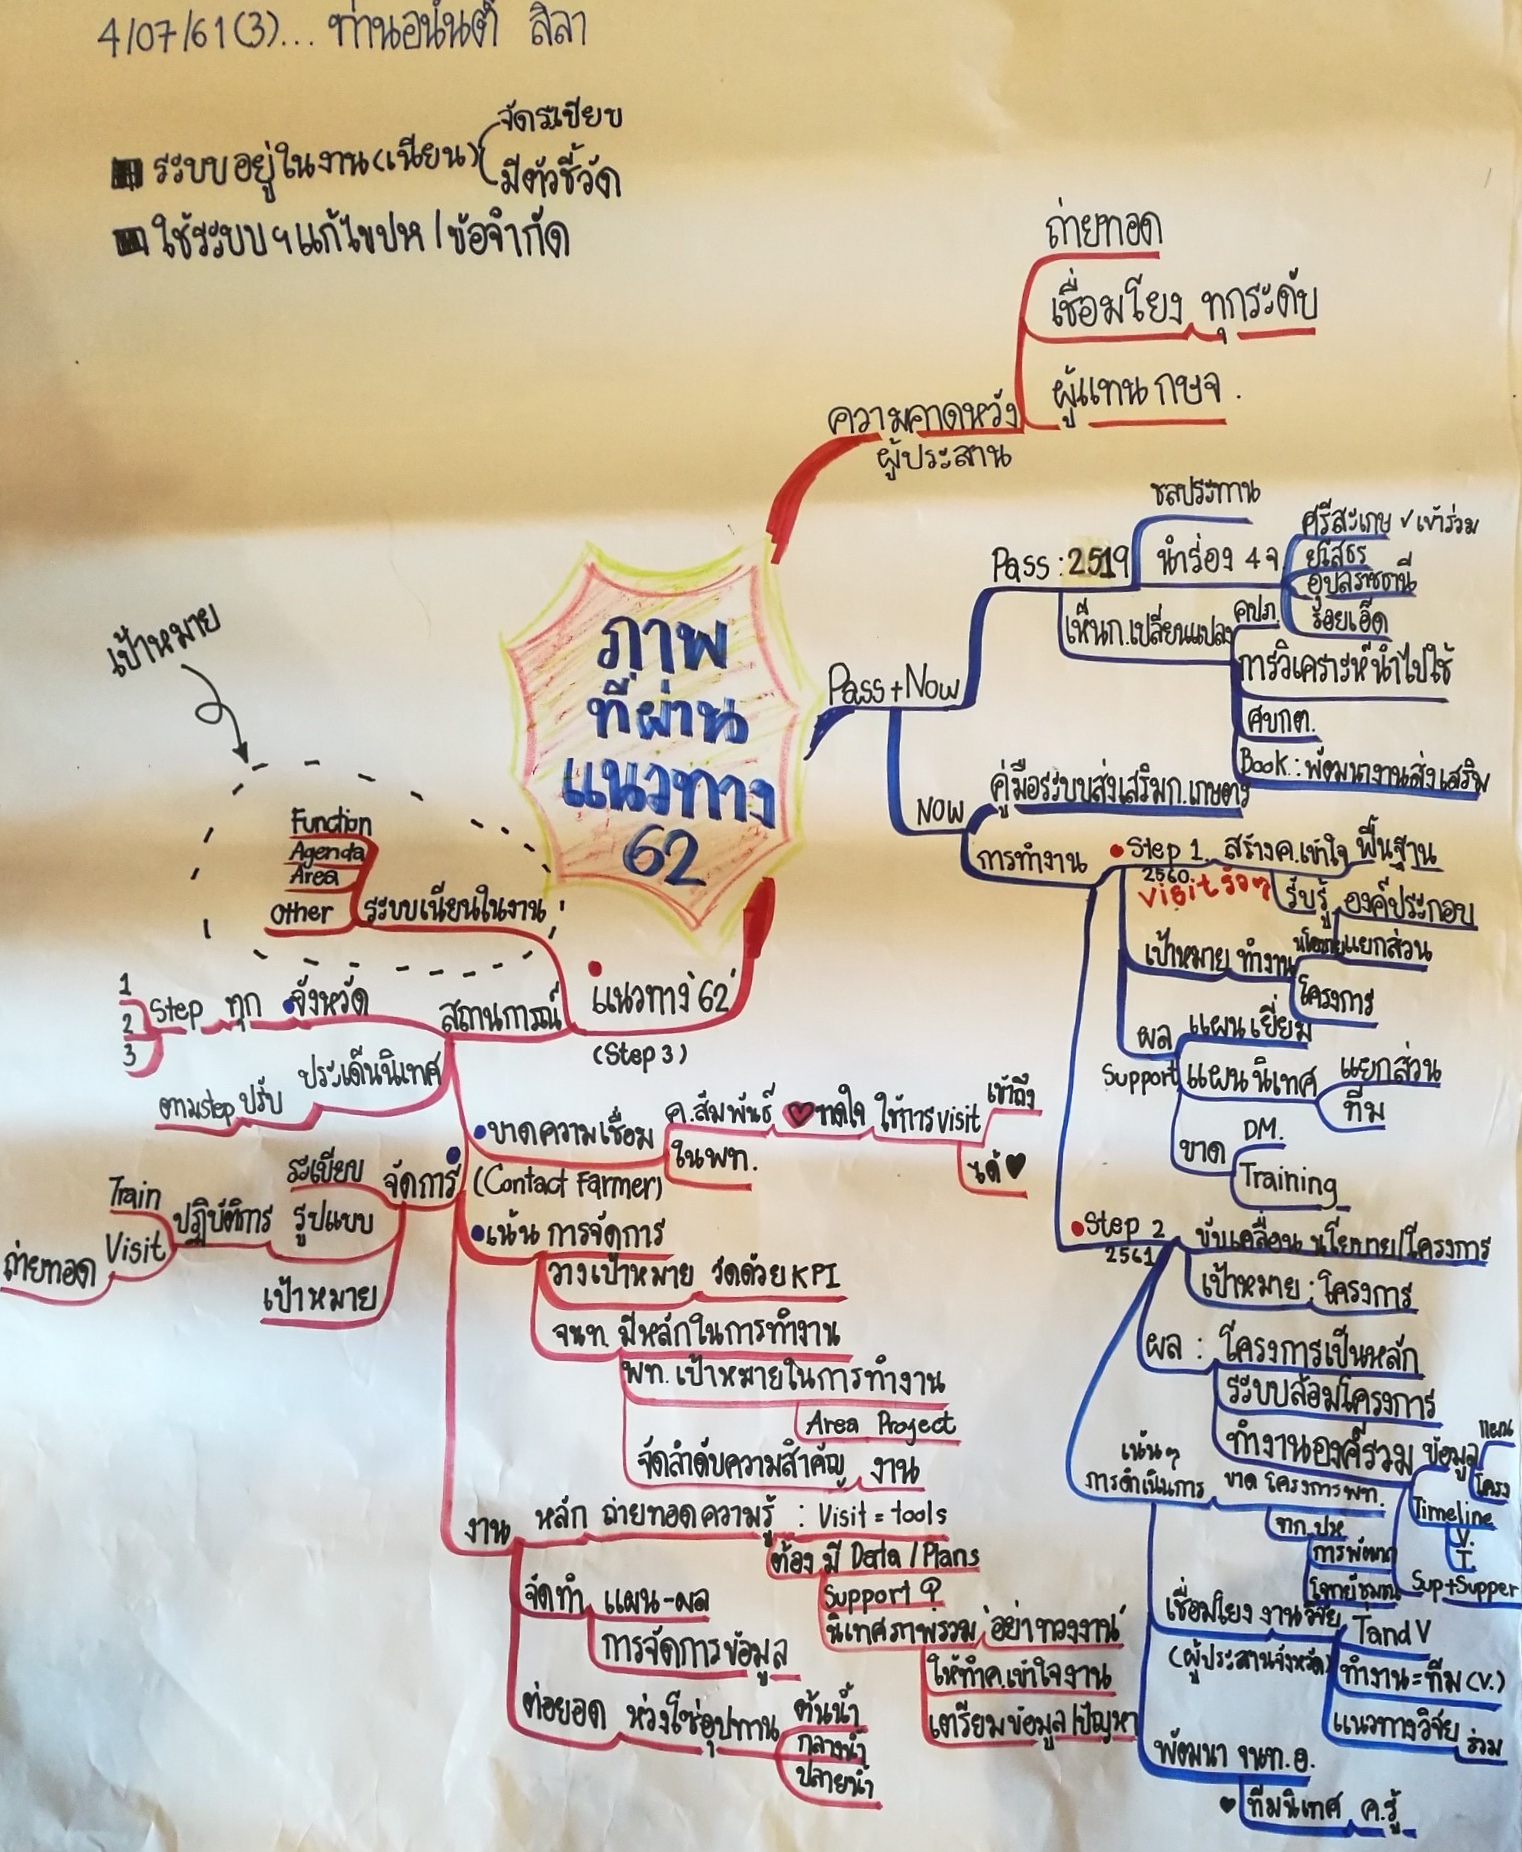 4/07/61(3)... ท่านอนันต์ ลิลา
ระบบอยู่ในงาน(เนียน)
จัดระเบียบ
มีตัวชี้วัด
ใช้ระบบฯแก้ไขปห/ข้อจำกัด
ภาพ
ที่ผ่าน
แนวทาง
62
ความคาดหวัง
ผู้ประสาน
ถ่ายทอด
เชื่อมโยง ทุกระดับ
ผู้แทน กษจ.
Pass + Now
Pass : 2519
ชลประทาน
นำร่อง 4 จ
ศรีสะเกษ ✓เข้าร่วม
ยโสธร
อุบลราชธานี
ร้อยเอ็ด
เห็นก.เปลี่ยนแปลง
คปภ.
การวิเคราะห์นำไปใช้
ศบกต.
Book : พัฒนางานส่งเสริม
NOW
คู่มือระบบส่งเสริมก.เกษตร
การทำงาน
Step 1. สร้างค.เข้าใจ พื้นฐาน
2560
Visit ร้อๆ
รับรู้ องค์ประกอบ
เป้าหมาย ทำงาน
นโยบาย แยกส่วน
โครงการ
ผล
Support
แผนเยี่ยม
แผนนิเทศ
แยกส่วน
ทีม
ขาด
DM.
Training
Step 2
2561
ขับเคลื่อน นโยบาย/โครงการ
เป้าหมาย : โครงการ
ผล : โครงการเป็นหลัก
ระบบล้อมโครงการ
ทำงานองค์รวม
ข้อมูล
แผน
โครง
Timeline
V.
T.
Sup+Supper
เน้นๆ
การดำเนินการ
ขาด โครงการพท.
ทก.ปห
การพัฒนา
โจทย์ชุมชน
เชื่อมโยง งานวิจัย
(ผู้ประสานจังหวัด)
T and V
ทำงาน=ทีม (V.)
แนวทางวิจัย ร่วม
พัฒนา จนท.อ.
ทีมนิเทศ ค.รู้
แนวทาง 62'
(Step 3)
เป้าหมาย
ระบบเนียนในงาน
Function
Agenda
Area
Other
สถานการณ์
จังหวัด
ทุก
Step
1
2
3
ประเด็นนิเทศ
ปรับ
ตามstep
ขาดความเชื่อม
(Contact Farmer)
ค.สัมพันธ์ ใช้การvisit
เข้าถึง
ได้
ในพท.
จัดการ
ระเบียบ
รูปแบบ
ปฏิบัติการ
Train
Visit
ถ่ายทอด
เป้าหมาย
เน้น การจัดการ
วางเป้าหมาย วัดด้วย KPI
จนท. มีหลักในการทำงาน
พท. เป้าหมายในการทำงาน
Area Project
จัดลำดับความสำคัญ งาน
งาน
หลัก ถ่ายทอดความรู้ : Visit = tools
ต้อง มี Data / Plans
Support ?
นิเทศภาพรวม 'อย่าทวงงาน'
ให้ทำค.เข้าใจงาน
เตรียมข้อมูล/ปัญหา
จัดทำ แผน-ผล
การจัดการข้อมูล
ต่อยอด ห่วงโซ่อุปทาน
ต้นน้ำ
กลางน้ำ
ปลายน้ำ